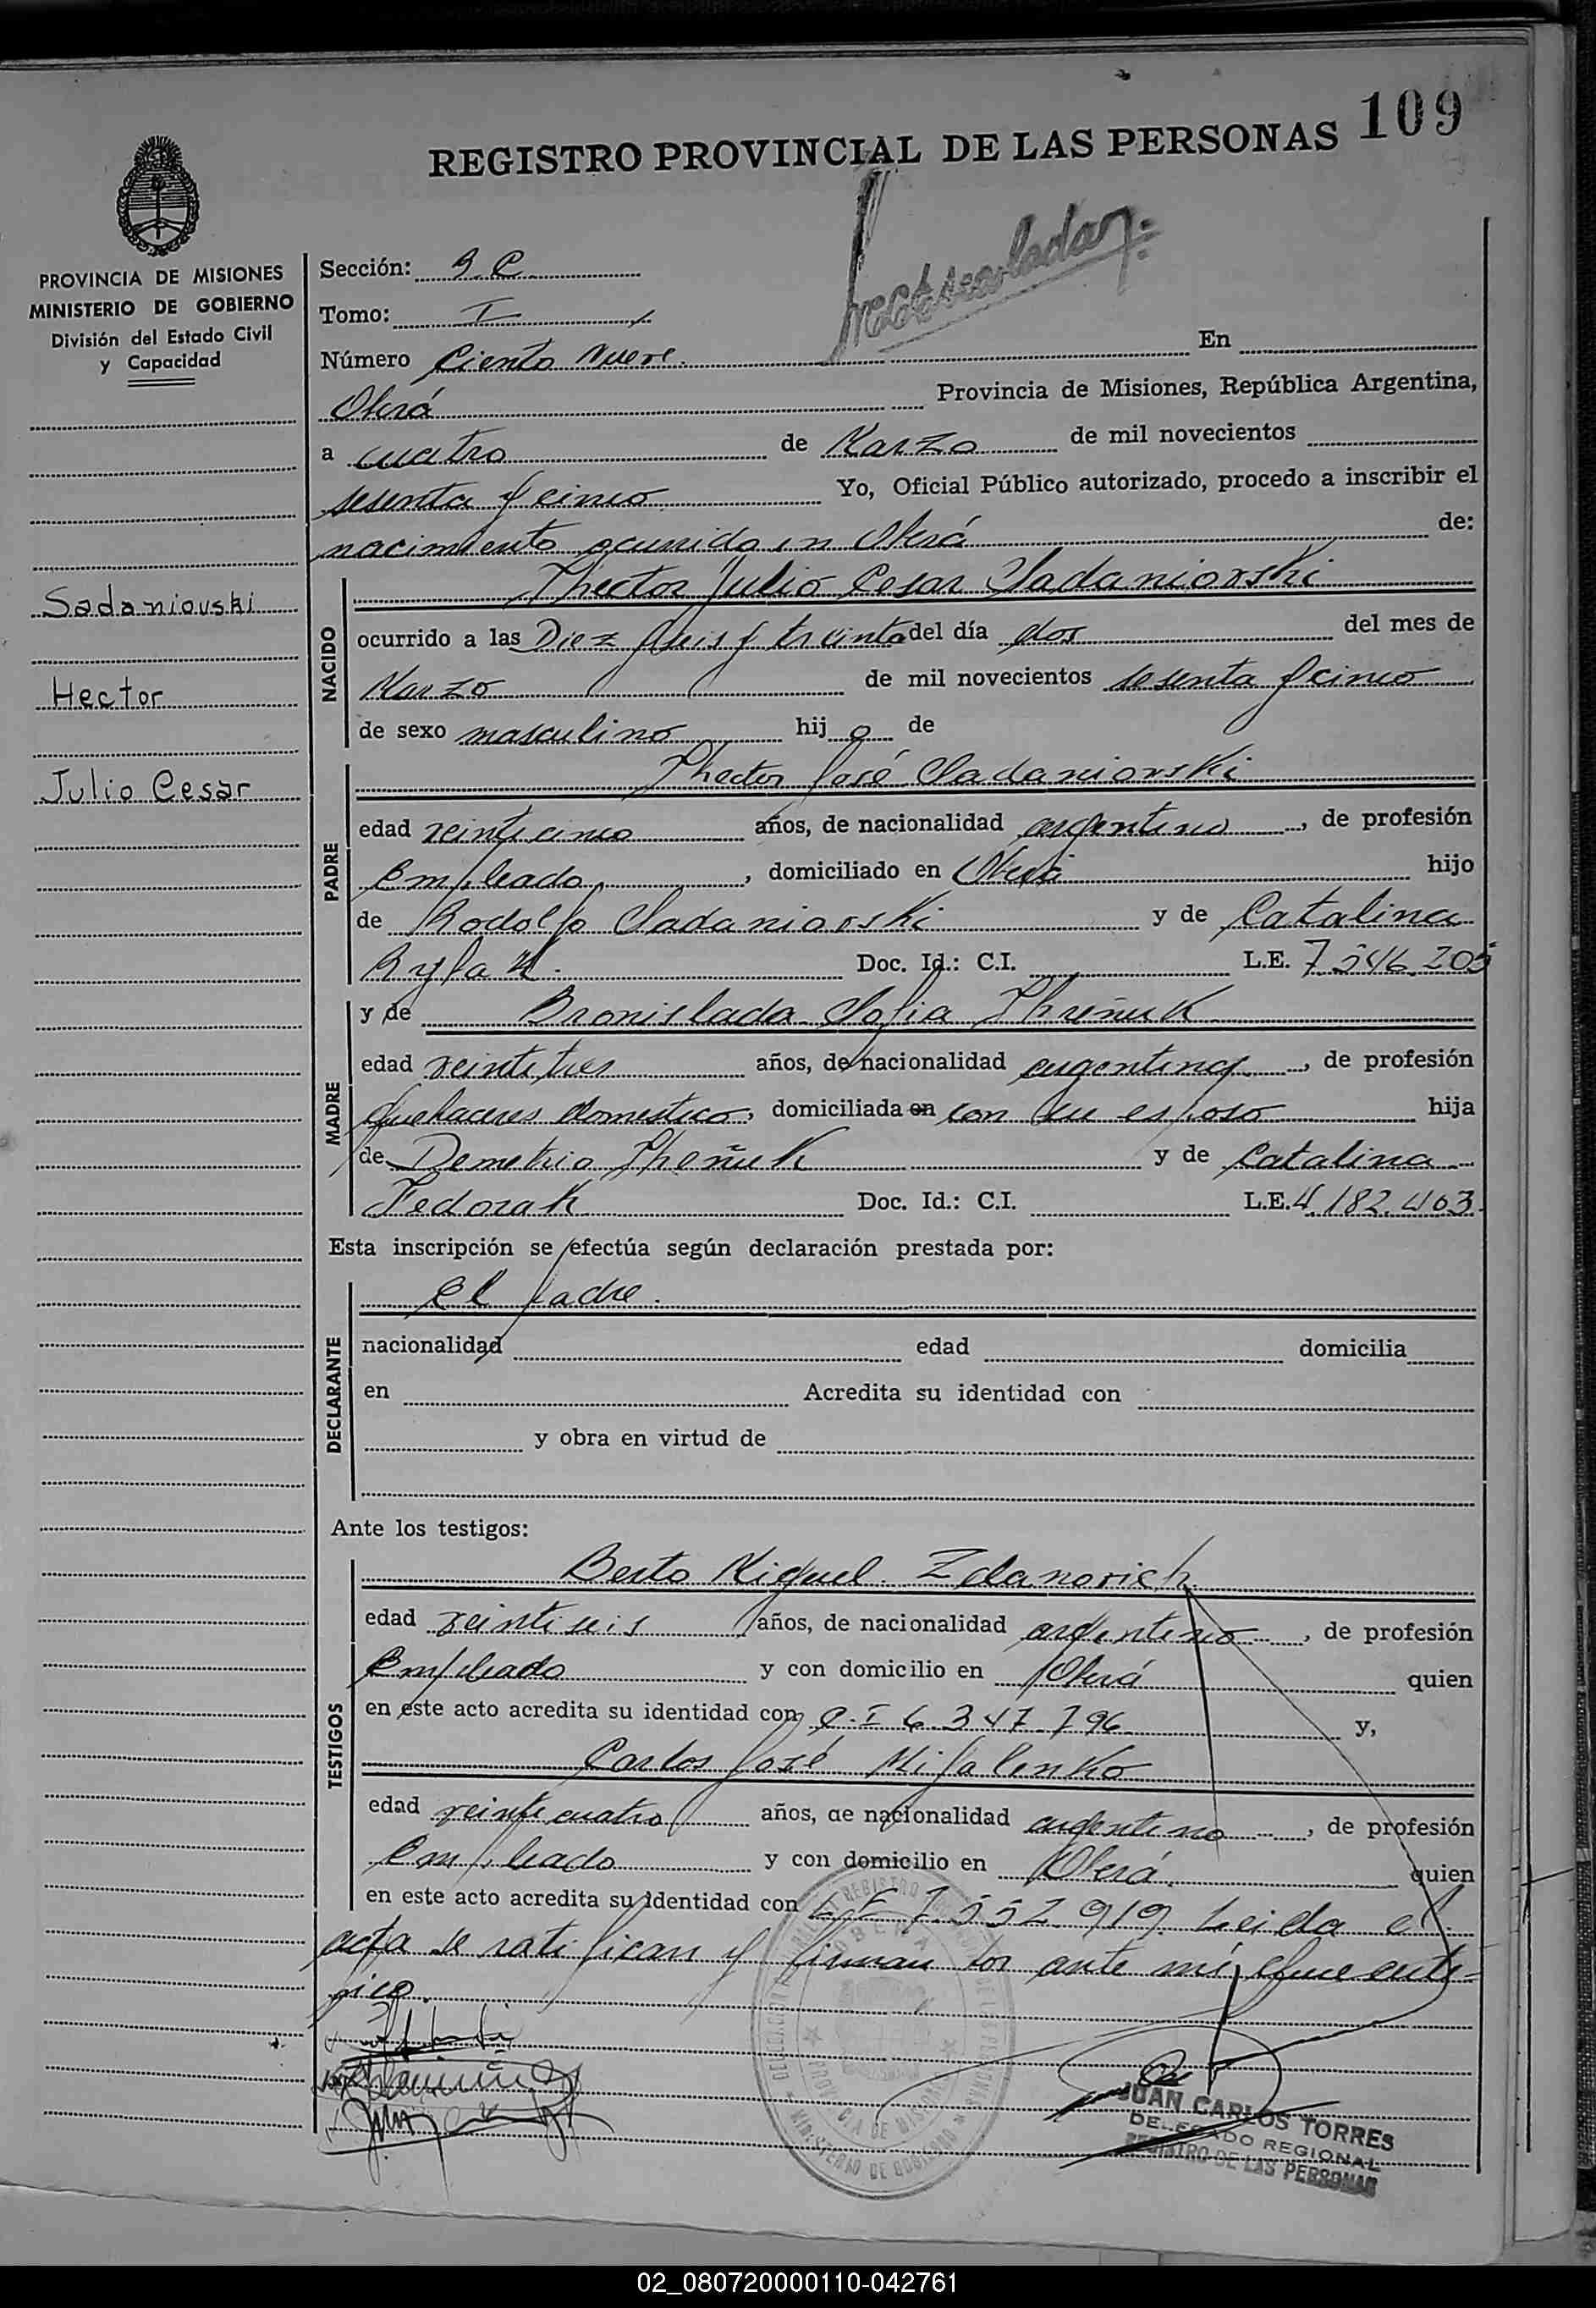 109
REGISTRO PROVINCIAL DE LAS PERSONAS
PROVINCIA DE MISIONES
MINISTERIO DE GOBIERNO
División del Estado Civil
y Capacidad
Sadaniovski
Hector
Julio Cesar
Sección:
Tomo: I
Número Ciento Nueve. En
Oberá Provincia de Misiones, República Argentina,
a cuatro de Marzo de mil novecientos
sesenta y cinco Yo, Oficial Público autorizado, procedo a inscribir el
nacimiento ocurrido en Oberá de:
NACIDO
Hector Julio Cesar Sadaniovski
ocurrido a las Diez y seis y treinta del día dos del mes de
Marzo de mil novecientos sesenta y cinco
de sexo masculino hijo de
PADRE
Hector José Sadaniovski
edad veinticinco años, de nacionalidad argentino, de profesión
Empleado, domiciliado en Oberá hijo
de Rodolfo Sadaniovski y de Catalina
Doc. Id.: C.I. L.E. 7.546.205
y de Bronislada Sofia
MADRE
edad veintitres años, de nacionalidad argentina, de profesión
Quehaceres domestico, domiciliada en con su esposo hija
de Demetrio y de Catalina
Fedorak Doc. Id.: C.I. L.E. 4.182.403.
Esta inscripción se efectúa según declaración prestada por:
DECLARANTE
el padre.
nacionalidad edad domicilia
en Acredita su identidad con
y obra en virtud de
Ante los testigos:
TESTIGOS
Berto Miguel Zdanovich
edad veintiseis años, de nacionalidad argentino, de profesión
Empleado y con domicilio en Oberá quien
en este acto acredita su identidad con C.I 6.347.796 y,
Carlos José Mijalenko
edad veinticuatro años, de nacionalidad argentino, de profesión
Empleado y con domicilio en Oberá. quien
en este acto acredita su identidad con L.E 7.552.919. Leida el
acta se ratifican y firman por ante mí, que certi-
fico.
JUAN CARLOS TORRES
DELEGADO REGIONAL
REGISTRO DE LAS PERSONAS
02_080720000110-042761